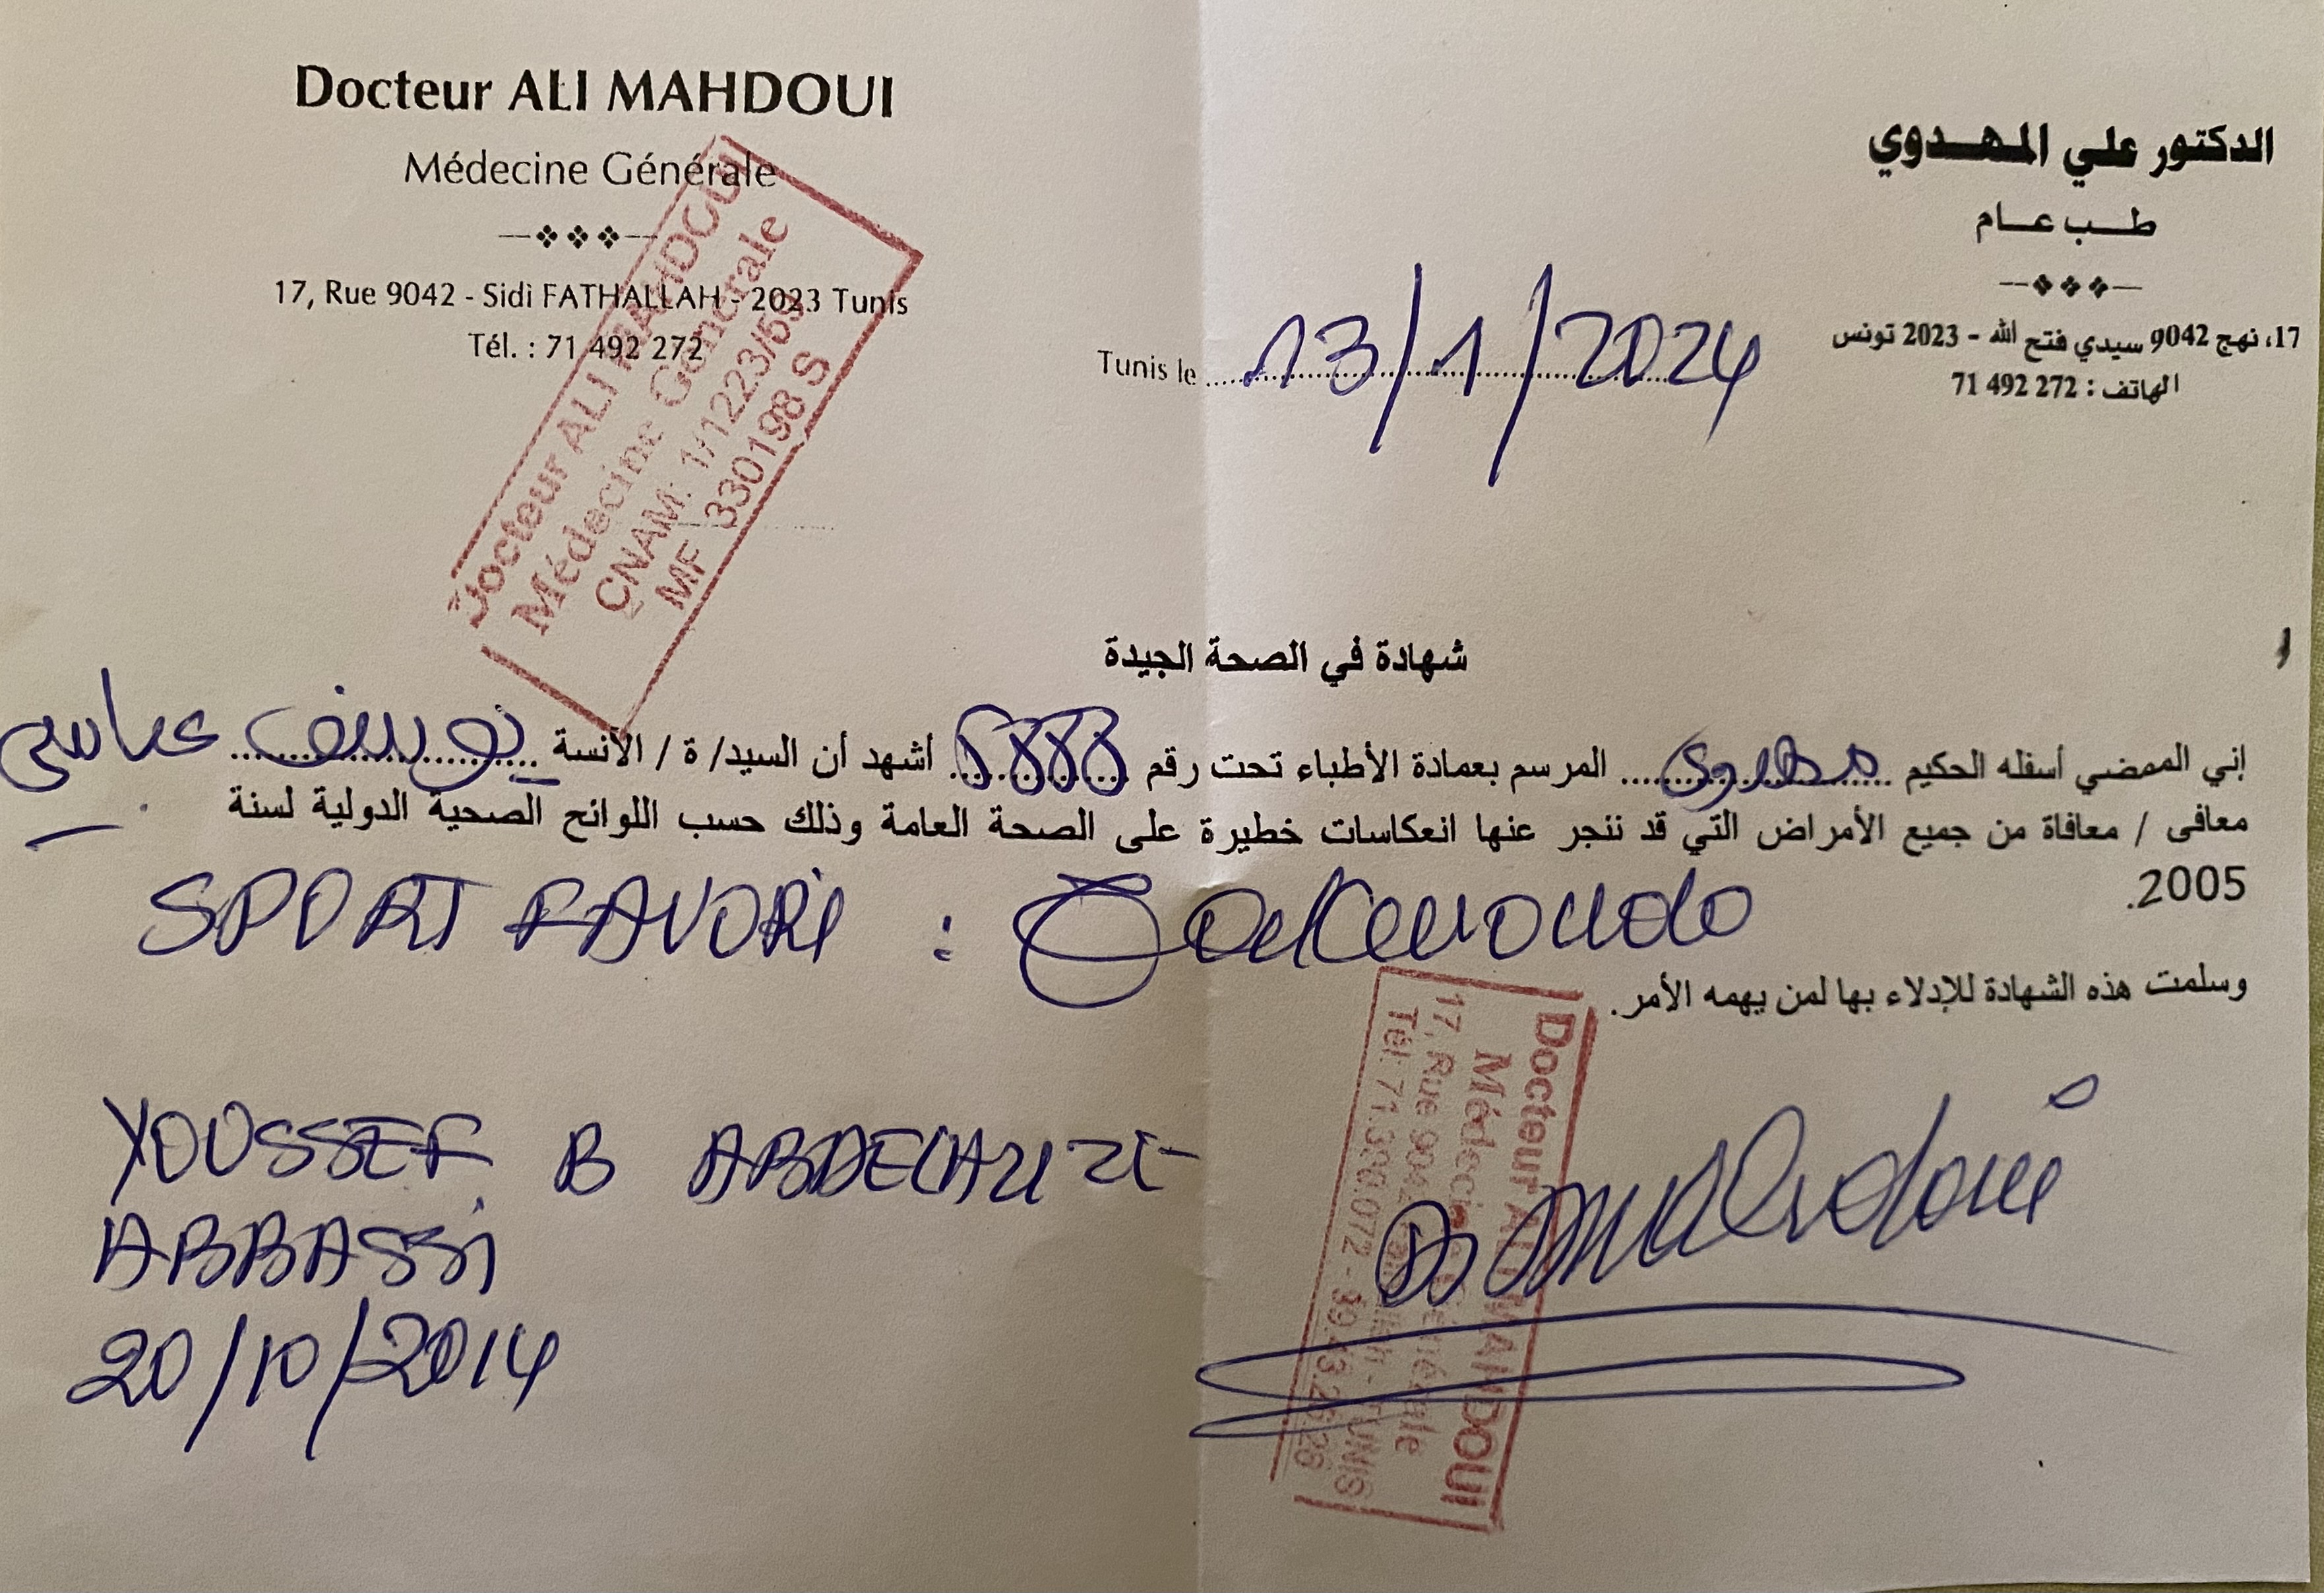 Docteur ALI MAHDOUI
Médecine Générale
17, Rue 9042 - Sidi FATHALLAH - 2023 Tunis
Tél. : 71 492 272
الدكتور علي المهدوي
طب عام
17، نهج 9042 سيدي فتح الله - 2023 تونس
الهاتف : 272 492 71
Tunis le 13/1/2024
Docteur ALI MAHDOUI
Médecine Générale
CNAM: 1/11223/69
MF 330198 S
شهادة في الصحة الجيدة
إني الممضي أسفله الحكيم مهدوي المرسم بعمادة الأطباء تحت رقم أشهد أن السيد/ ة / الآنسة يوسف عباسي
معافى / معافاة من جميع الأمراض التي قد تنجر عنها انعكاسات خطيرة على الصحة العامة وذلك حسب اللوائح الصحية الدولية لسنة
2005.
SPORT FAVORI : Taekwondo
وسلمت هذه الشهادة للإدلاء بها لمن يهمه الأمر.
YOUSSEF B ABDELAZIZ
ABBASSI
20/10/2014
Docteur ALI MAHDOUI
Médecine Générale
17, Rue 9042 - TUNIS
Tél: 71.320.072
Dr Mahdoui